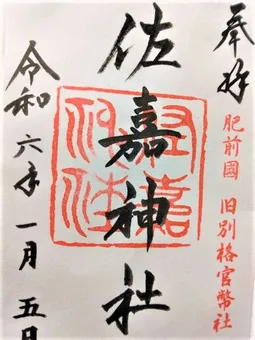 奉拝
肥前國 旧別格官幣社
佐嘉神社
佐嘉神社
令和六年一月五日